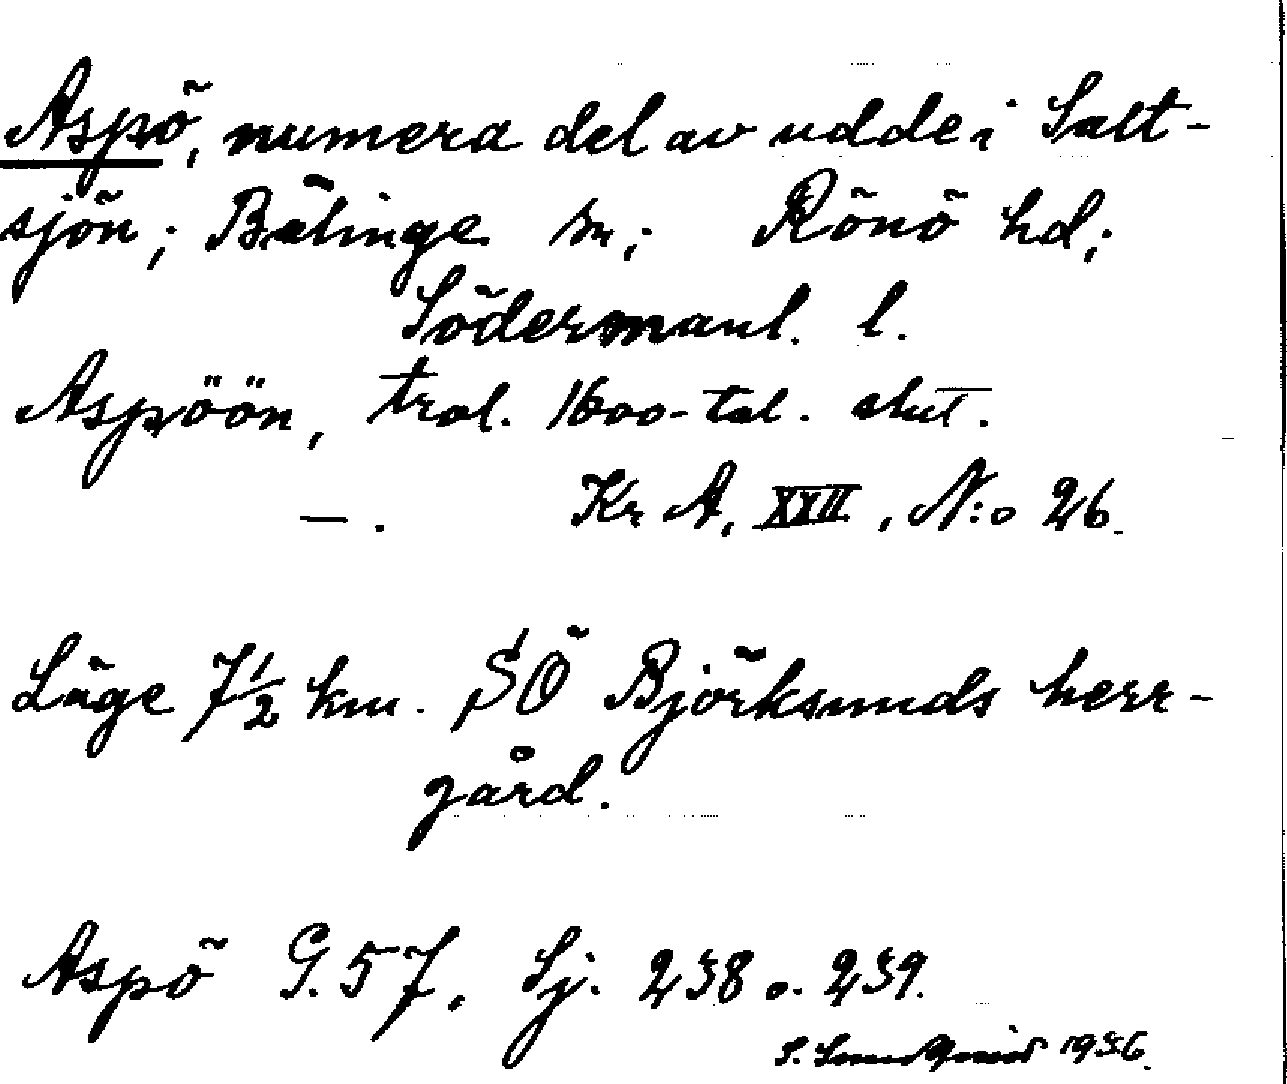 Aspö, numera del av udde i Salt-
sjön; Bälinge sn; Rönö hd;
Södermanl. l.
Aspöön, trol. 1600-tal. slut.
— . Kr A, XXII, N:o 26.
Läge 7½ km. SÖ Björksunds herr-
gård.
Aspö G. 57. Sj. 238 o. 239.
S. 1936.